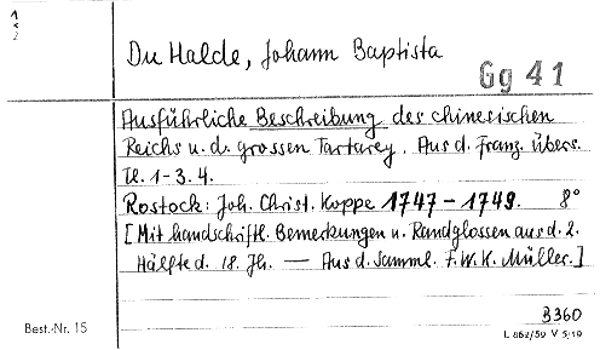 1
<
2
Du Halde, Johann Baptista
Gg 41
Ausführliche Beschreibung des chinesischen
Reichs u. d. grossen Tartarey. Aus d. Franz. übers.
Tl. 1-3. 4.
Rostock: Joh. Christ. Koppe 1747-1749. 8°
[Mit handschriftl. Bemerkungen u. Randglossen aus d. 2.
Hälfte d. 18. Jh. — Aus d. Samml. F. W. K. Müller.]
B360
Best.-Nr. 15
L 862/59 V 5 10